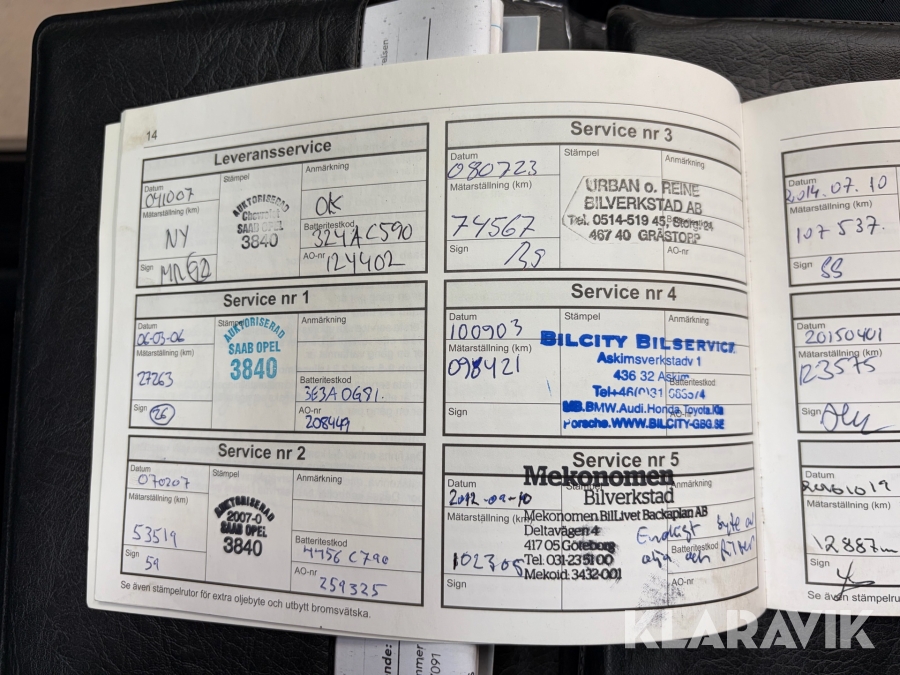 14
Leveransservice
Datum
041007
Stämpel
Anmärkning
OK
Mätarställning (km)
NY
AUKTORISERAD
Chevrolet
SAAB OPEL
3840
Batteritestkod
324AC590
Sign
AO-nr
124402
Service nr 1
Datum
06-03-06
Stämpel
Anmärkning
Mätarställning (km)
27263
AUKTORISERAD
SAAB OPEL
3840
Batteritestkod
3E3A0G81.
Sign
26
AO-nr
208449
Service nr 2
Datum
070207
Stämpel
Anmärkning
Mätarställning (km)
53519
AUKTORISERAD
2007-0
SAAB OPEL
3840
Batteritestkod
4456 C790
Sign
59
AO-nr
259325
Se även stämpelrutor för extra oljebyte och utbytt bromsvätska.
Service nr 3
Datum
080723
Stämpel
Anmärkning
Mätarställning (km)
74567
URBAN o. REINE
BILVERKSTAD AB
Tel. 0514-519 45, Storg. 24
467 40 GRÄSTORP
Sign
AO-nr
Service nr 4
Datum
100903
Stämpel
Anmärkning
Mätarställning (km)
098421
BILCITY BILSERVICE
Askimsverkstadv 1
436 32 Askim
Batteritestkod
MB.BMW.Audi.Honda,Toyota.Kia
Porsche.WWW.BILCITY-GBG.SE
Sign
Service nr 5
Datum
2012-09-10
Stämpel
Anmärkning
Mekonomen
Bilverkstad
Mätarställning (km)
102305
Mekonomen BilLivet Backaplan AB
Deltavägen 4
417 05 Göteborg
Tel: 031-23 51 00
Mekoid: 3432-001
Endast byte av
olja och filter
Batteritestkod
Sign
AO-nr
Datum
2014.07.10
Mätarställning (km)
107537.
Sign
SS
Datum
20150401
Mätarställning (km)
123575
Sign
Datum
Mätarställning (km)
Sign
Se även stämpelru
KLARAVIK